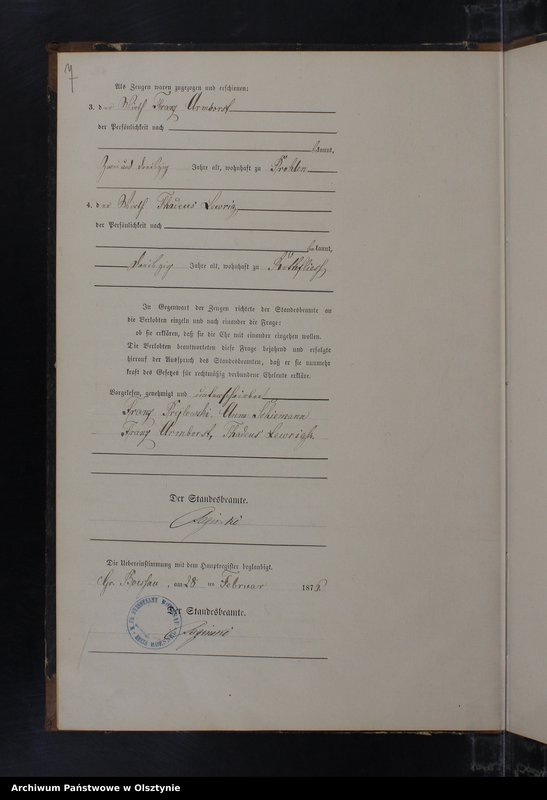 Als Zeugen waren zugezogen und erschienen:
3. der Wirth Franz Armborst
der Persönlichkeit nach
kannt,
Zwei und dreißig Jahre alt, wohnhaft zu Prohlen
4. der Wirth Thadeus Lewrig
der Persönlichkeit nach
kannt,
dreißig Jahre alt, wohnhaft zu Rothfließ
In Gegenwart der Zeugen richtete der Standesbeamte an
die Verlobten einzeln und nach einander die Frage:
ob sie erklären, daß sie die Ehe mit einander eingehen wollen.
Die Verlobten beantworteten diese Frage bejahend und erfolgte
hierauf der Ausspruch des Standesbeamten, daß er sie nunmehr
kraft des Gesetzes für rechtmäßig verbundene Eheleute erkläre.
Vorgelesen, genehmigt und unterschrieben
Franz Anna Schiemann
Franz Armborst, Thadeus Lewrigk
Der Standesbeamte.
Die Uebereinstimmung mit dem Hauptregister beglaubigt.
Gr. Boessau, am 28 ten Februar 1876
Der Standesbeamte.
Archiwum Państwowe w Olsztynie